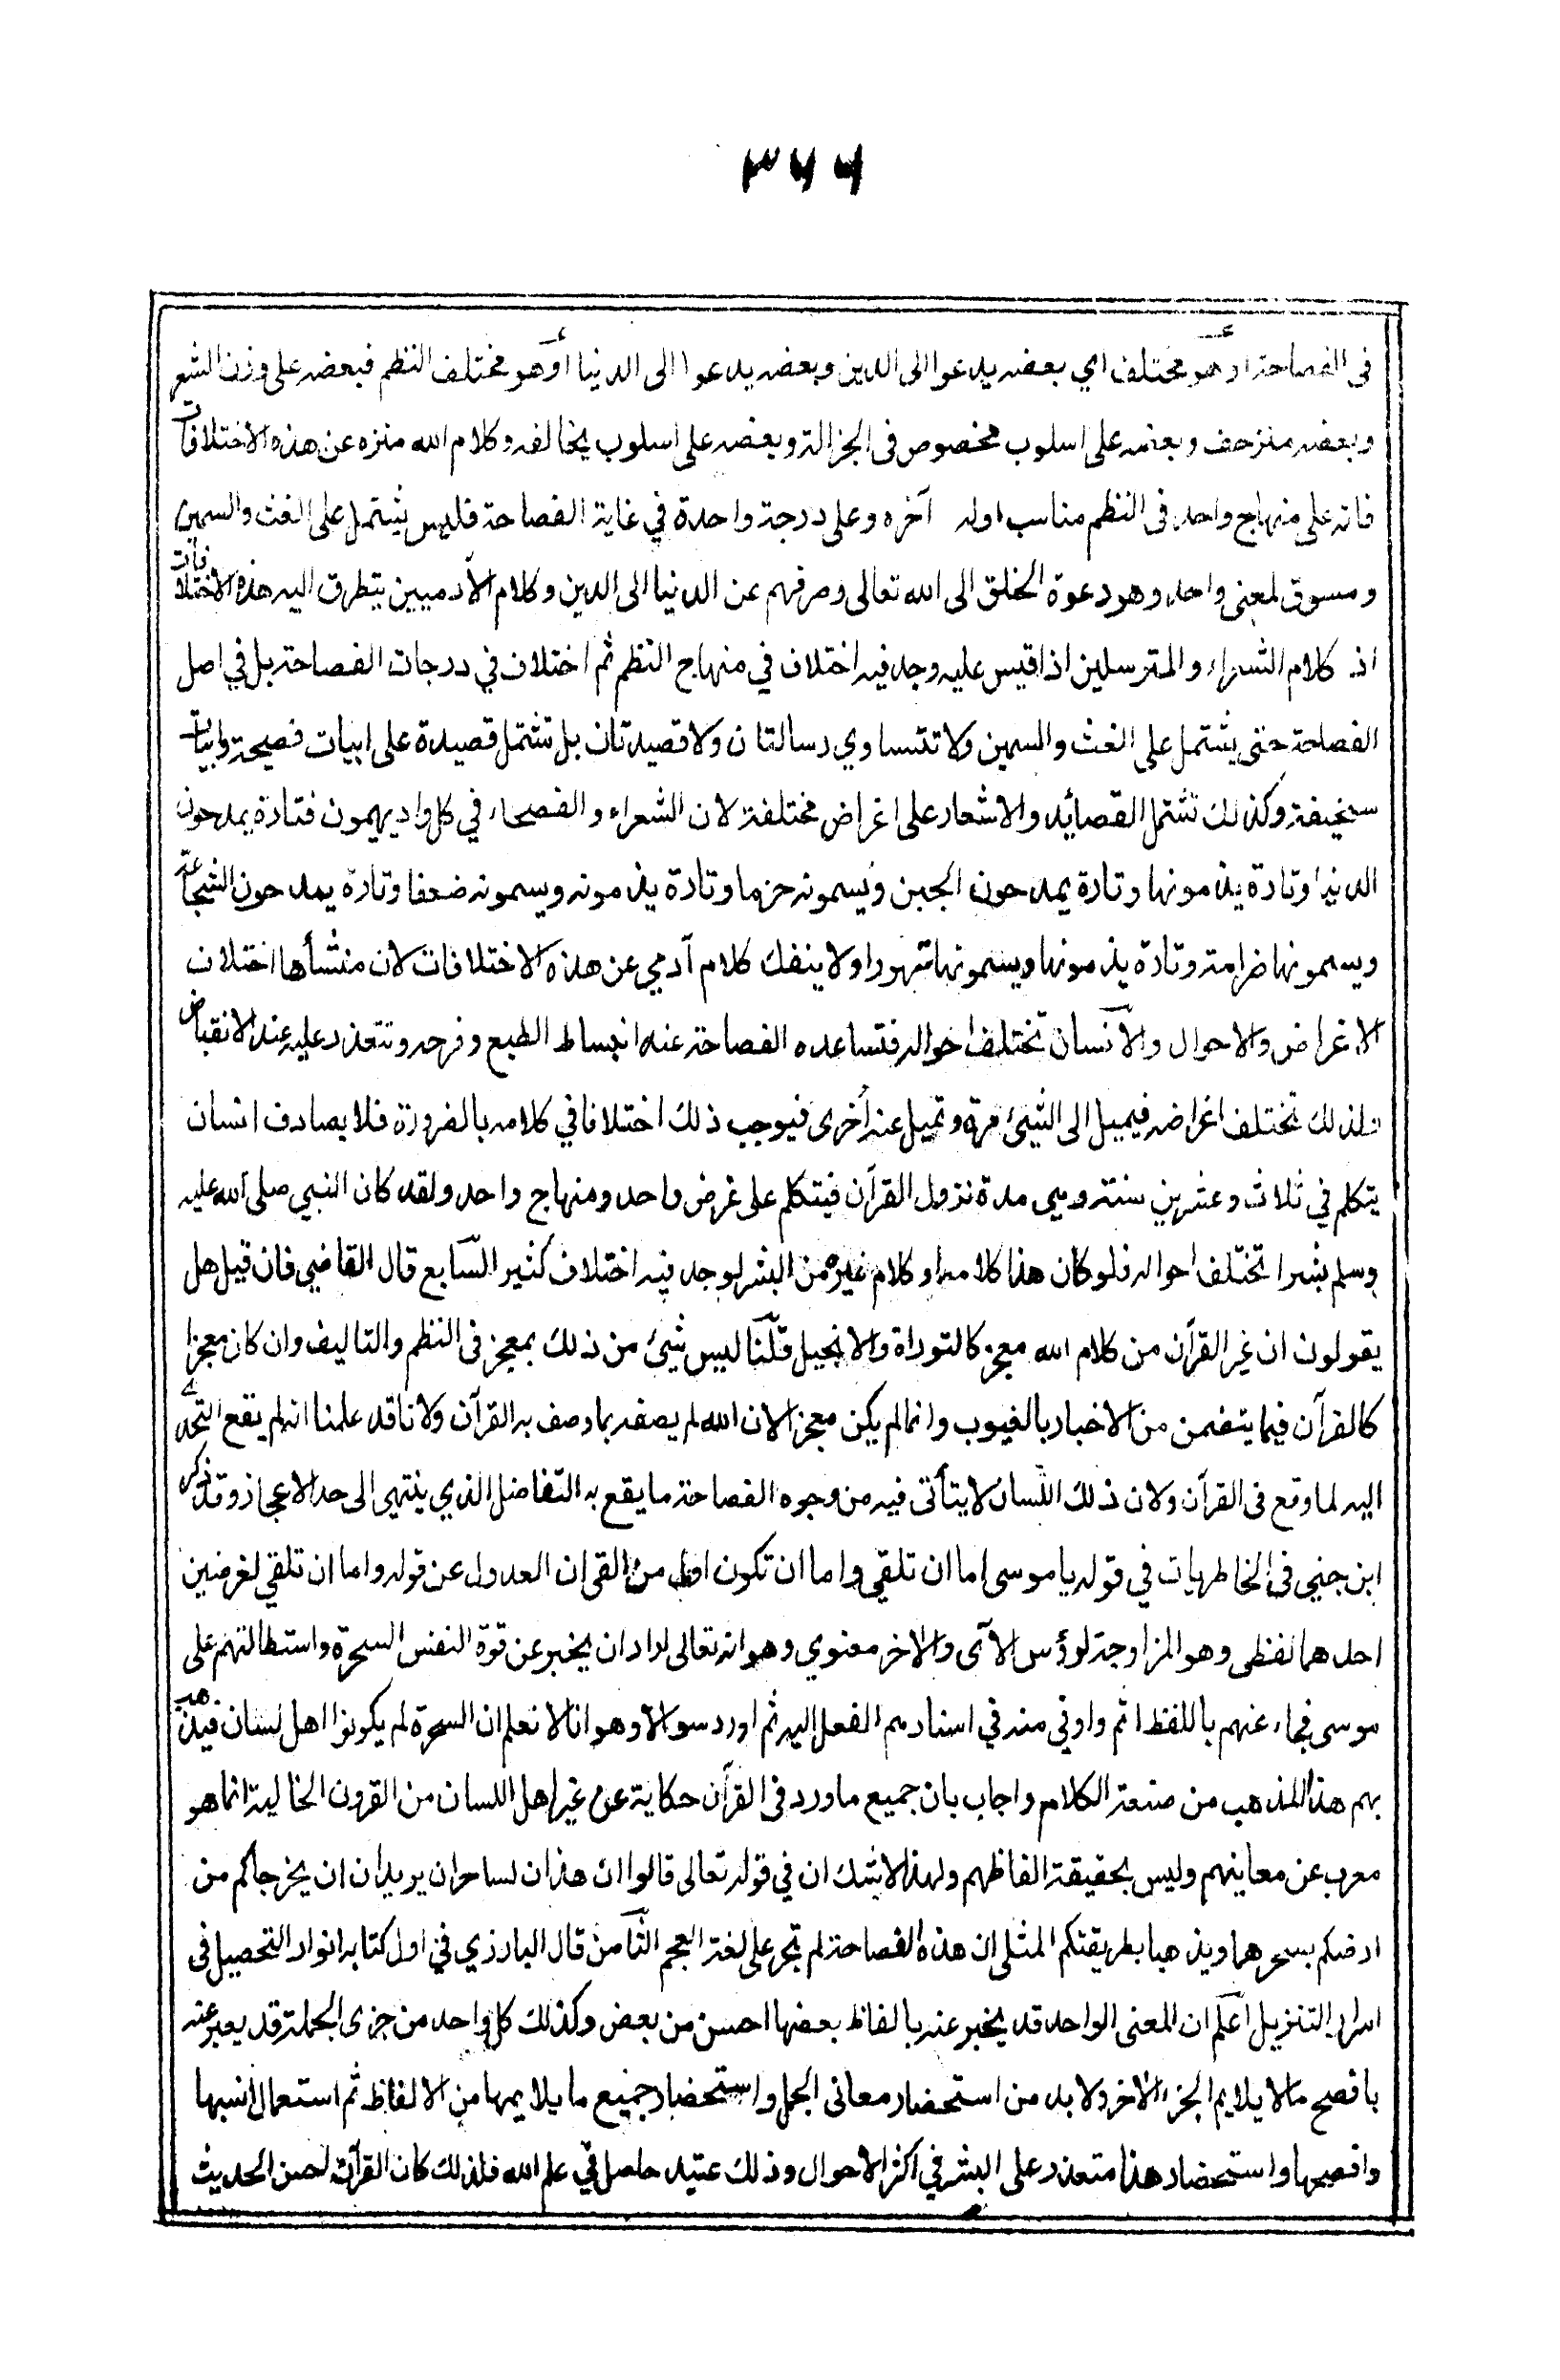 ٣٧٦
فى الفصاحة او هو مختلف اي بعضه يدعوا الى الدين وبعضه يدعوا الى الدنيا أو هو مختلف النظم فبعضه على وزن الشعر
وبعضه منزحف وبعضه على اسلوب مخصوص فى الجزالة وبعضه على اسلوب يخالفه وكلام الله منزه عن هذه الاختلافات
فانه على منهاج واحد فى النظم مناسب اوله آخره وعلى درجة واحدة في غاية الفصاحة فليس يشتمل على الغث والسمين
ومسوق لمعنى واحد وهو دعوة الخلق الى الله تعالى وصرفهم عن الدنيا الى الدين وكلام الآدميين يتطرق اليه هذه الاختلافات
اذ كلام الشعراء والمترسلين اذا قيس عليه وجد فيه اختلاف في منهاج النظم ثم اختلاف في درجات الفصاحة بل في اصل
الفصاحة حتى يشتمل على الغث والسمين ولا تتساوي رسالتان ولا قصيدتان بل تشتمل قصيدة على ابيات فصيحة وابيات
سخيفة وكذلك تشتمل القصائد والاشعار على اغراض مختلفة لان الشعراء والفصحاء في كل واد يهيمون فتارة يمدحون
الدنيا وتارة يذمونها وتارة يمدحون الجبن ويسمونه حزما وتارة يذمونه ويسمونه ضعفا وتارة يمدحون الشجاعة
ويسمونها ضرامة وتارة يذمونها ويسمونها تهورا ولا ينفك كلام آدمي عن هذه الاختلافات لان منشأها اختلاف
الاغراض والاحوال والآنسان تختلف احواله فتساعده الفصاحة عند انبساط الطبع وفرحه وتتعذر عليه عند الانقباض
فلذلك تختلف اغراضه فيميل الى الشيئ مرة وتميل عنه أخرى فيوجب ذلك اختلافا في كلامه بالضرورة فلا يصادف انسان
يتكلم في ثلاث وعشرين سنة وهي مدة نزول القرآن فيتكلم على غرض واحد ومنهاج واحد ولقد كان النبي صلى الله عليه
وسلم بشرا تختلف احواله فلو كان هذا كلامه او كلام غيره من البشر لوجد فيه اختلاف كثير السّابع قال القاضي فان قيل هل
يقولون ان غير القرآن من كلام الله معجز كالتوراة والانجيل قلّنا ليس شيئ من ذلك بمعجز فى النظم والتاليف وان كان معجزا
كالقرآن فيما يتضمن من الاخبار بالغيوب وانما لم يكن معجزا لان الله لم يصفه بما وصف به القرآن ولانا قد علمنا انه لم يقع التحدي
اليه لما وقع فى القرآن ولان ذلك اللسان لا يتأتى فيه من وجوه الفصاحة ما يقع به التفاضل الذي ينتهي الى حد الاعجاز وقد ذكر
ابن جني فى الخاطريات في قوله يا موسى اما ان تلقي واما ان تكون اول من القى ان العدول عن قوله واما ان تلقي لغرضين
احدهما لفظى وهو المزاوجة لرؤس الآى والآخر معنوي وهو انه تعالى اراد ان يخبر عن قوة النفس السحرة واستطالتهم على
موسى فجاء عنهم باللفظ اتم واوفي منه في اسنادهم الفعل اليه ثم اورد سوالا وهو انا لا نعلم ان السحرة لم يكونوا اهل لسان فيذهب
بهم هذا المذهب من صنعة الكلام واجاب بان جميع ما ورد فى القرآن حكاية عن غير اهل اللسان من القرون الخالية انما هو
معرب عن معانيهم وليس بحقيقة الفاظهم ولهذا لا شك ان في قوله تعالى قالوا ان هذان لساحران يريدان ان يخرجاكم من
ارضكم بسحرهما ويذهبا بطريقتكم المثلى ان هذه الفصاحة لم تجر على لغة العجم الثّامن قال البارزي في اول كتابه انوار التحصيل فى
اسرار التنزيل اعلم ان المعنى الواحد قد يخبر عنه بالفاظ بعضها احسن من بعض وكذلك كل واحد من جزى الجملة قد يعبر عنه
بافصح ما لا يلايم الجزء الآخر ولا بد من استحضار معانى الجمل واستحضار جميع ما يلايمها من الالفاظ ثم استعمال انسبها
وافصحها واستحضار هذا متعذر على البشر في اكثر الاحوال وذلك عتيد حاصل في علم الله فلذلك كان القرآن احسن الحديث